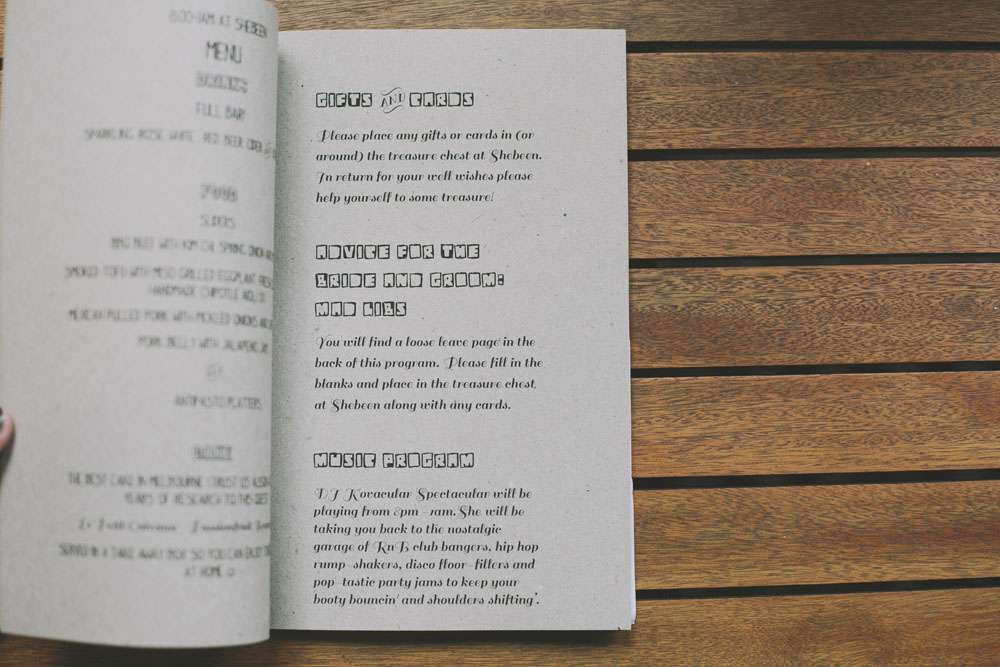 AT SHEBEEN
MENU
FULL BAR
SPARKLING ROSE WHITE RED BEER CIDER
FOOD
SLIDERS
BEEF WITH SPRING ONION
SMOKED TOFU WITH MISO GRILLED EGGPLANT
HANDMADE CHIPOTLE AIOLI
MEXICAN PULLED PORK WITH PICKLED ONIONS AND
PORK BELLY WITH JALAPENO
ANTIPASTO PLATTERS
THE BEST CAKE IN MELBOURNE (TRUST US
YEARS OF RESEARCH TO THIS
SERVED IN A TAKE AWAY BOX SO YOU CAN ENJOY
AT HOME
GIFTS AND CARDS
Please place any gifts or cards in (or
around) the treasure chest at Shebeen.
In return for your well wishes please
help yourself to some treasure!
ADVICE FOR THE
BRIDE AND GROOM:
MAD LIBS
You will find a loose leave page in the
back of this program. Please fill in the
blanks and place in the treasure chest
at Shebeen along with any cards.
MUSIC PROGRAM
DJ Kovacular Spectacular will be
playing from 8pm-1am. She will be
taking you back to the nostalgic
garage of RnB club bangers, hip hop
rump-shakers, disco floor-fillers and
pop-tastic party jams to keep your
booty bouncin' and shoulders shifting'.